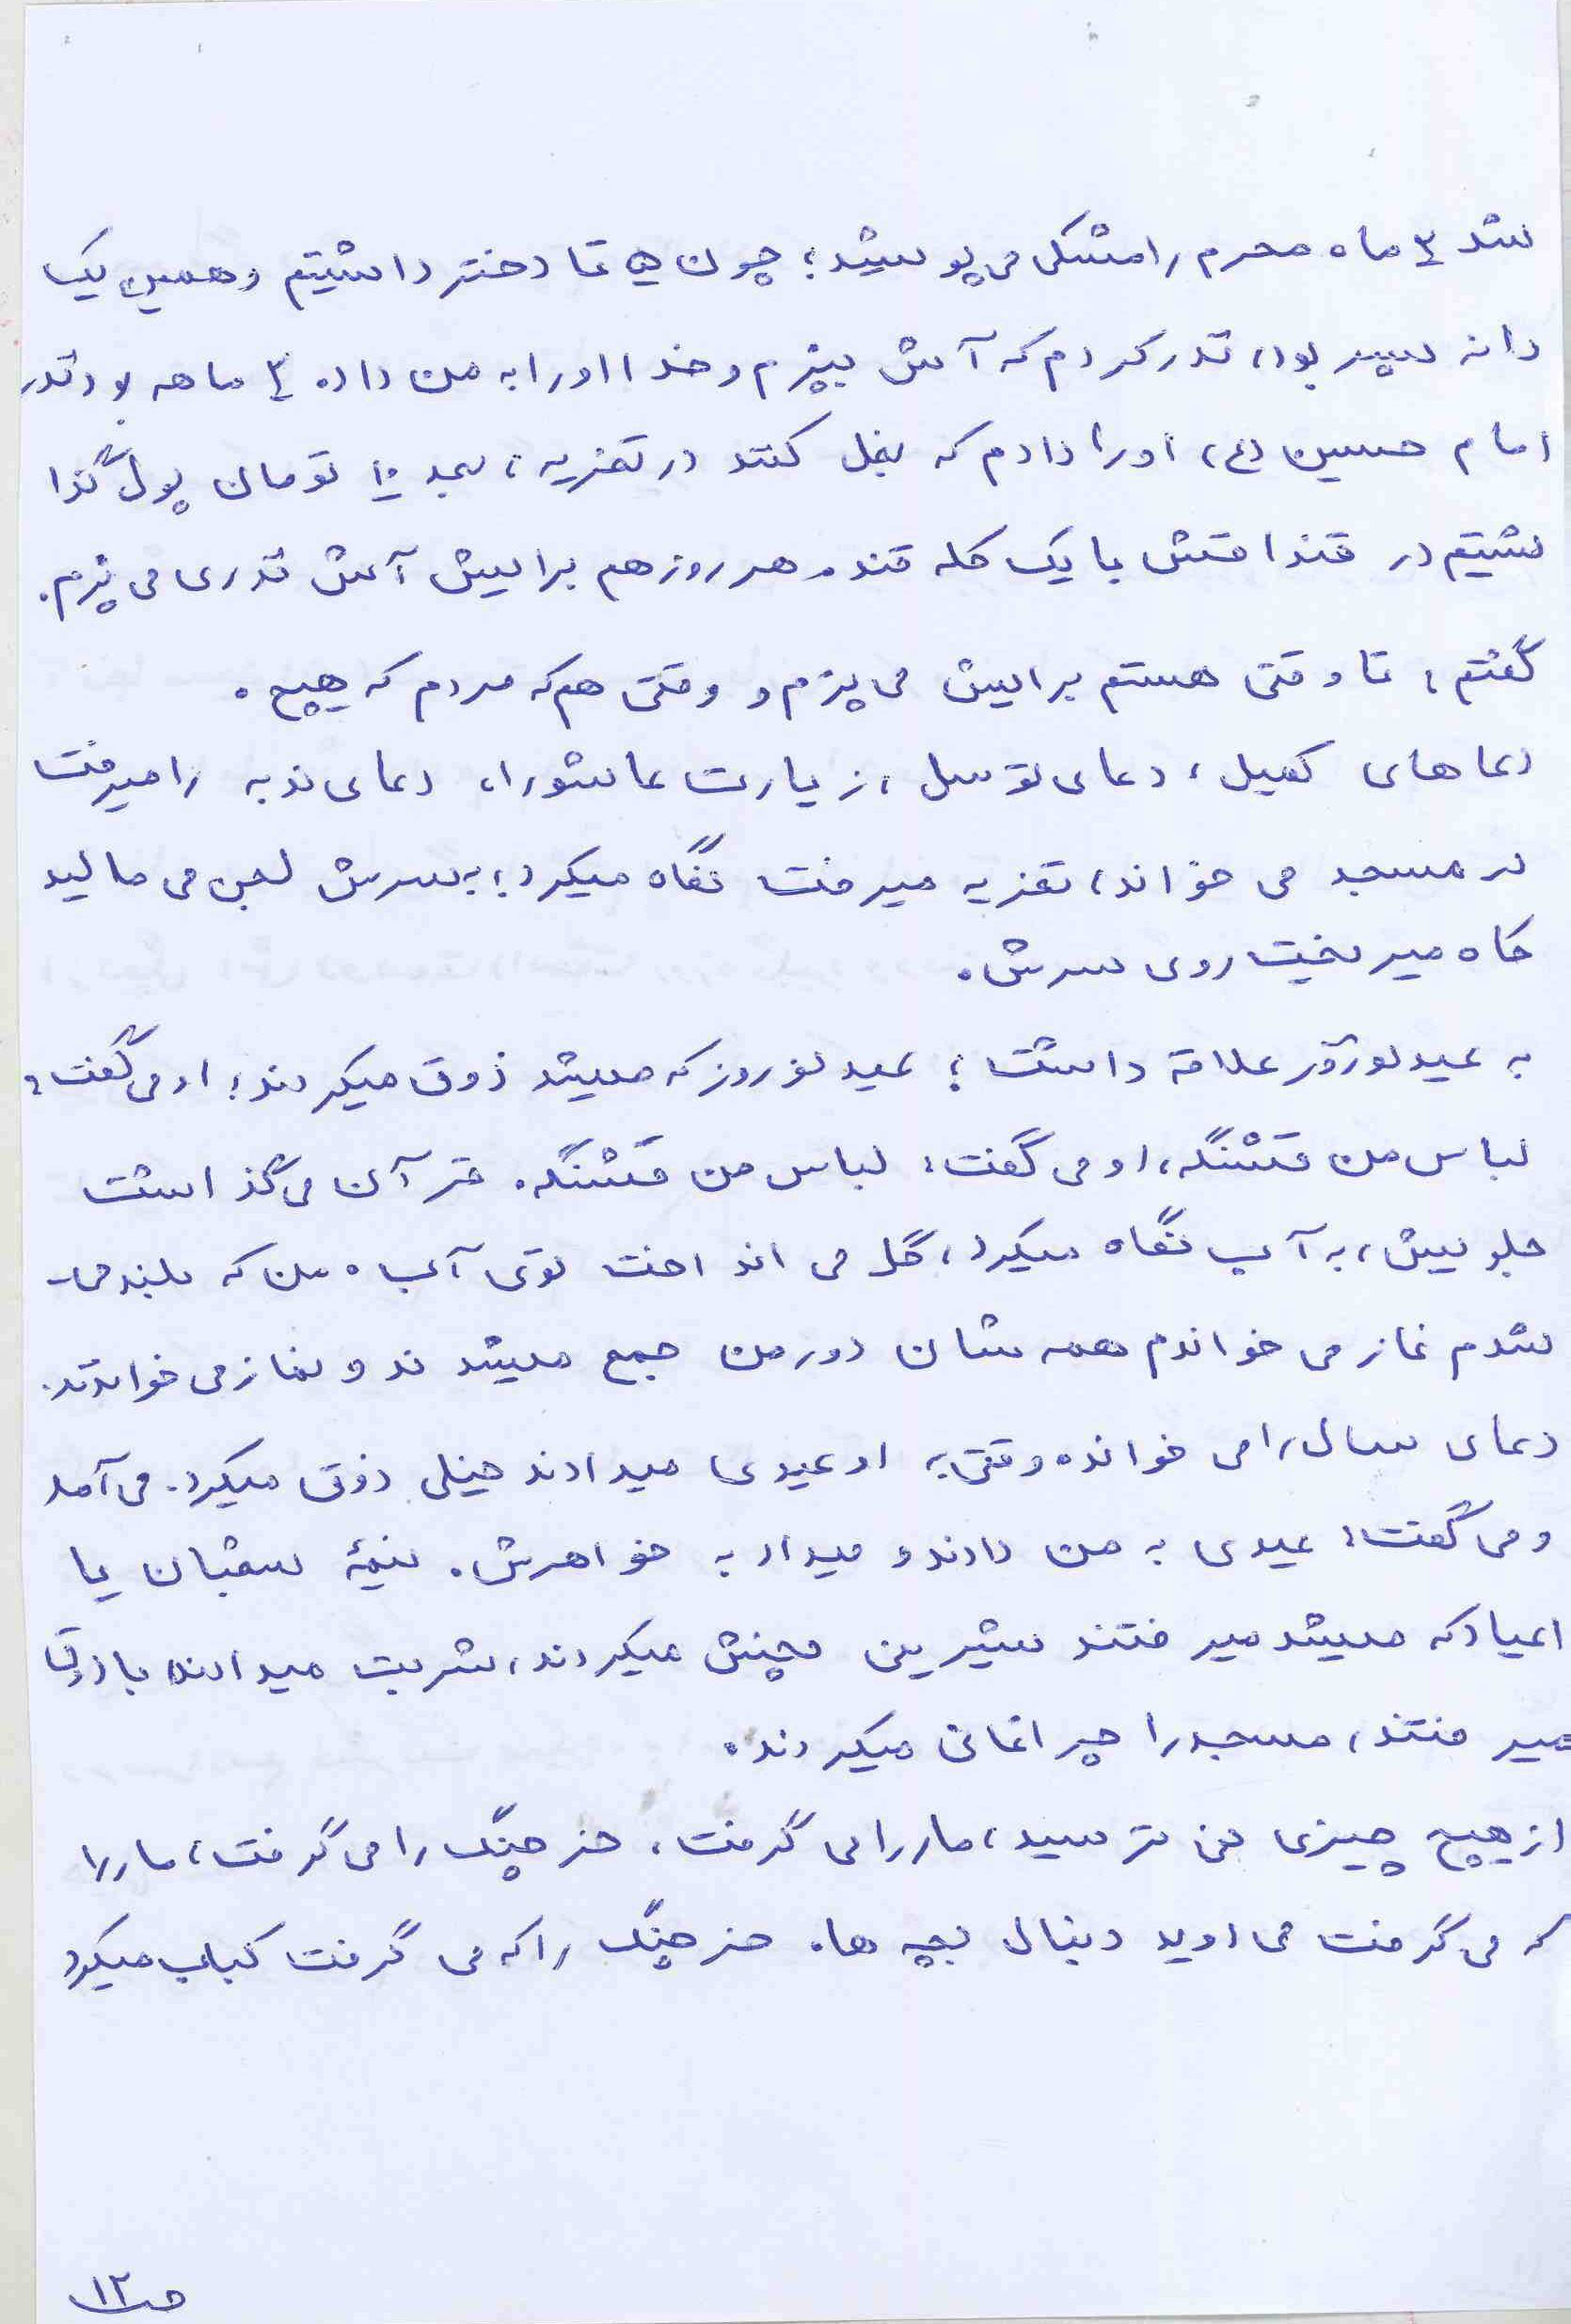 شد ۴ ماه محرم را مشکی می پوشید؛ چون ۵ تا دختر داشتیم و همین یک
دانه پسر بود، نذر کردم که آش بپزم و خدا او را به من داد. ۴ ماهه بود نذر
امام حسین (ع)، او را دادم که بغل کنند در تعزیه، بعد ۱۰ تومان پول گذا
شتیم در قنداقش با یک کله قند. هر روز هم برایش آش نذری می پزم.
گفتم: تا وقتی هستم برایش می پزم و وقتی هم که مردم که هیچ.
دعاهای کمیل، دعای توسل، زیارت عاشورا، دعای ندبه را میرفت
در مسجد می خواند، تعزیه میرفت نگاه میکرد؛ به سرش لجن می مالید
کاه میریخت روی سرش.
به عید نوروز علاقه داشت؛ عید نوروز که میشد ذوق میکردند؛ او می گفت:
لباس من قشنگه، او می گفت: لباس من قشنگه. قرآن می گذاشت
جلویش، به آب نگاه میکرد، گل می انداخت توی آب. من که بلند می-
شدم نماز می خواندم همه شان دور من جمع میشدند و نماز می خواندند.
دعای سال را می خواند. وقتی به او عیدی میدادند خیلی ذوق میکرد. می آمد
و می گفت: عیدی به من دادند و میداد به خواهرش. نیمۀ شعبان یا
اعیاد که میشد میرفتند شیرینی پخش میکردند، شربت میدادند با ذوق
میرفتند، مسجد را چراغانی میکردند.
از هیچ چیزی نمی ترسید، مار را می گرفت. خرچنگ را می گرفت، مار را
که می گرفت می دوید دنبال بچه ها. خرچنگ را که می گرفت کباب میکرد
ص۱۲